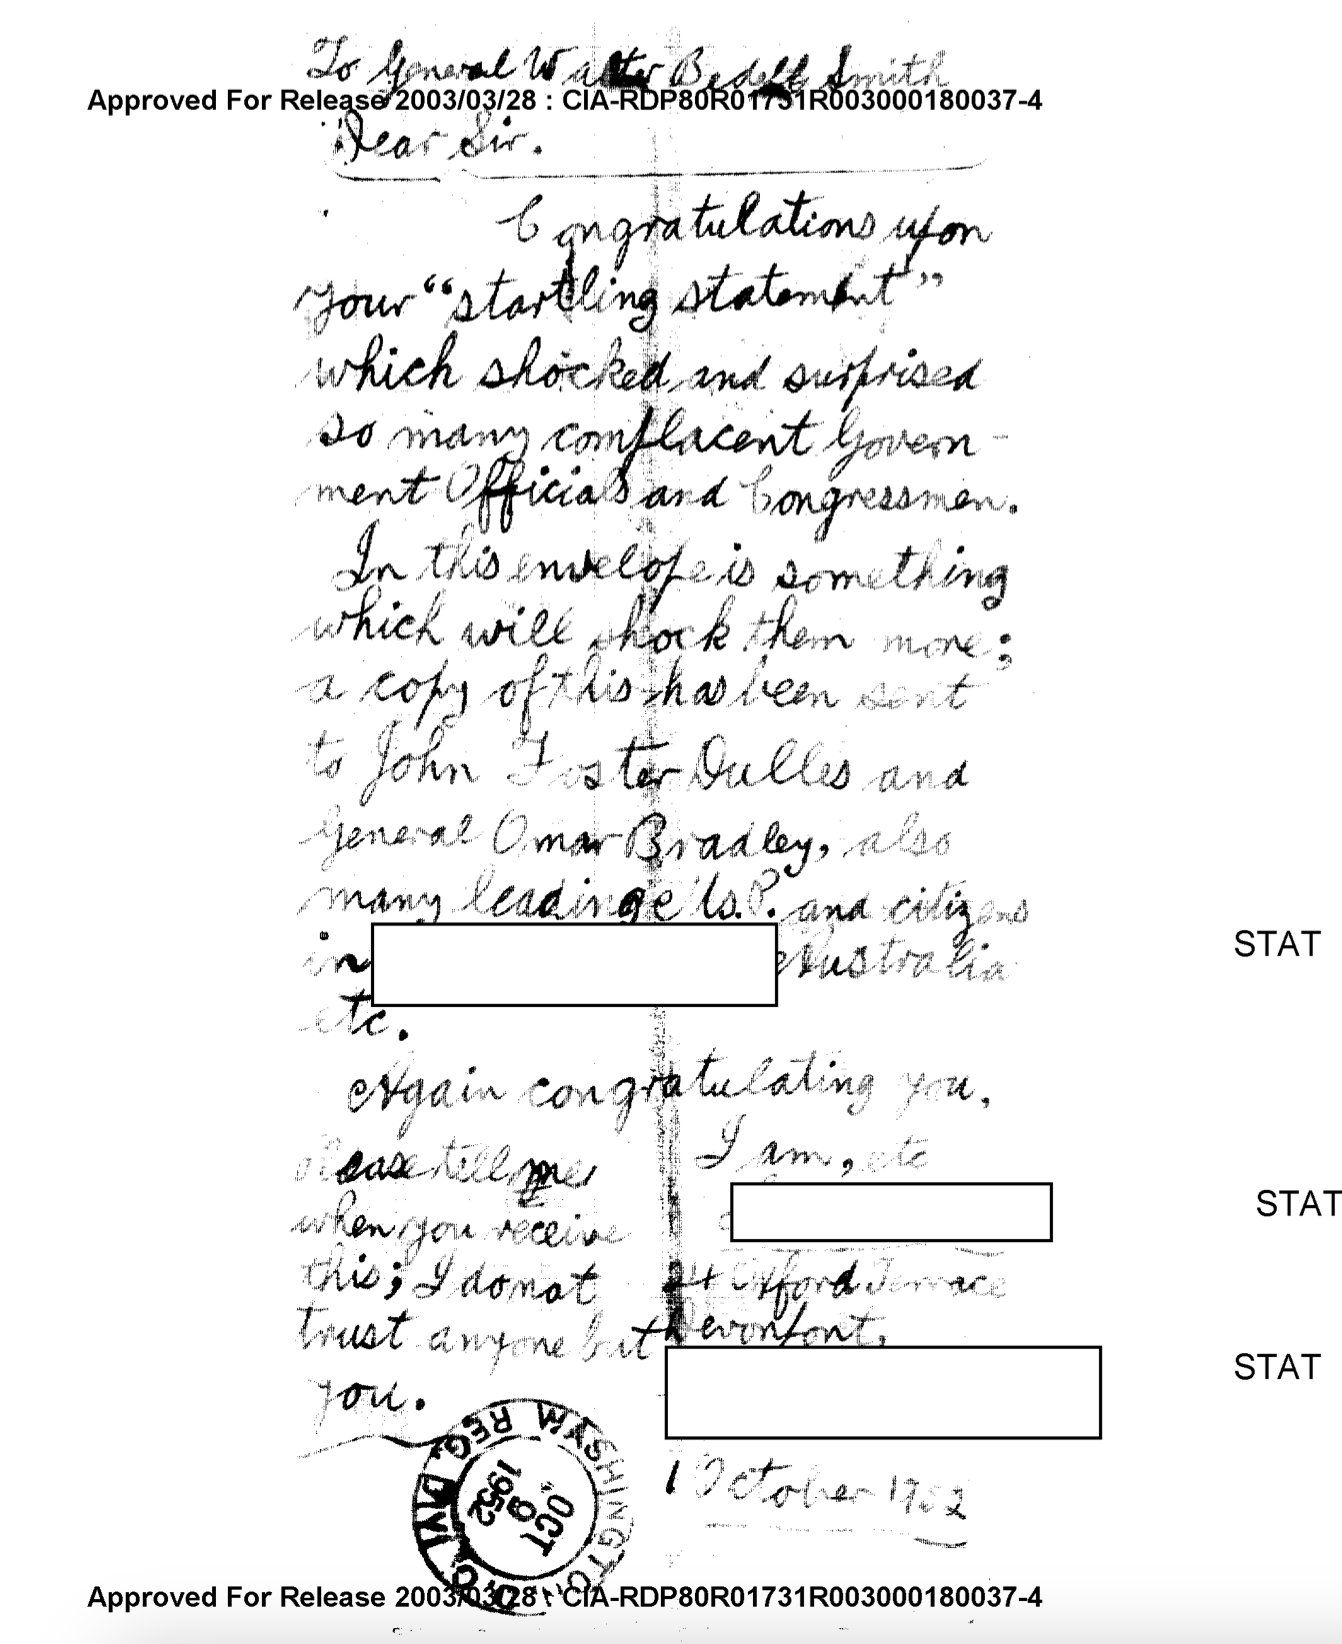 To General Walter Bedell Smith
Approved For Release 2003/03/28 : CIA-RDP80R01731R003000180037-4
Dear Sir.
Congratulations upon
your "startling statement"
which shocked and surprised
so many complacent Govern-
ment Officials and Congressmen.
In this envelope is something
which will shock them more;
a copy of this has been sent
to John Foster Dulles and
General Omar Bradley, also
many leading and citizens
in Australia STAT
etc.
Again congratulating you,
I am, etc
please tell me
STAT
when you receive
this; I do not
trust anyone but
you.
24 Oxford Terrace
Devonport,
STAT
1 October 1952
WASHINGTON, D.C. REG. DIV.
OCT
9
1952
Approved For Release 2003/03/28 : CIA-RDP80R01731R003000180037-4